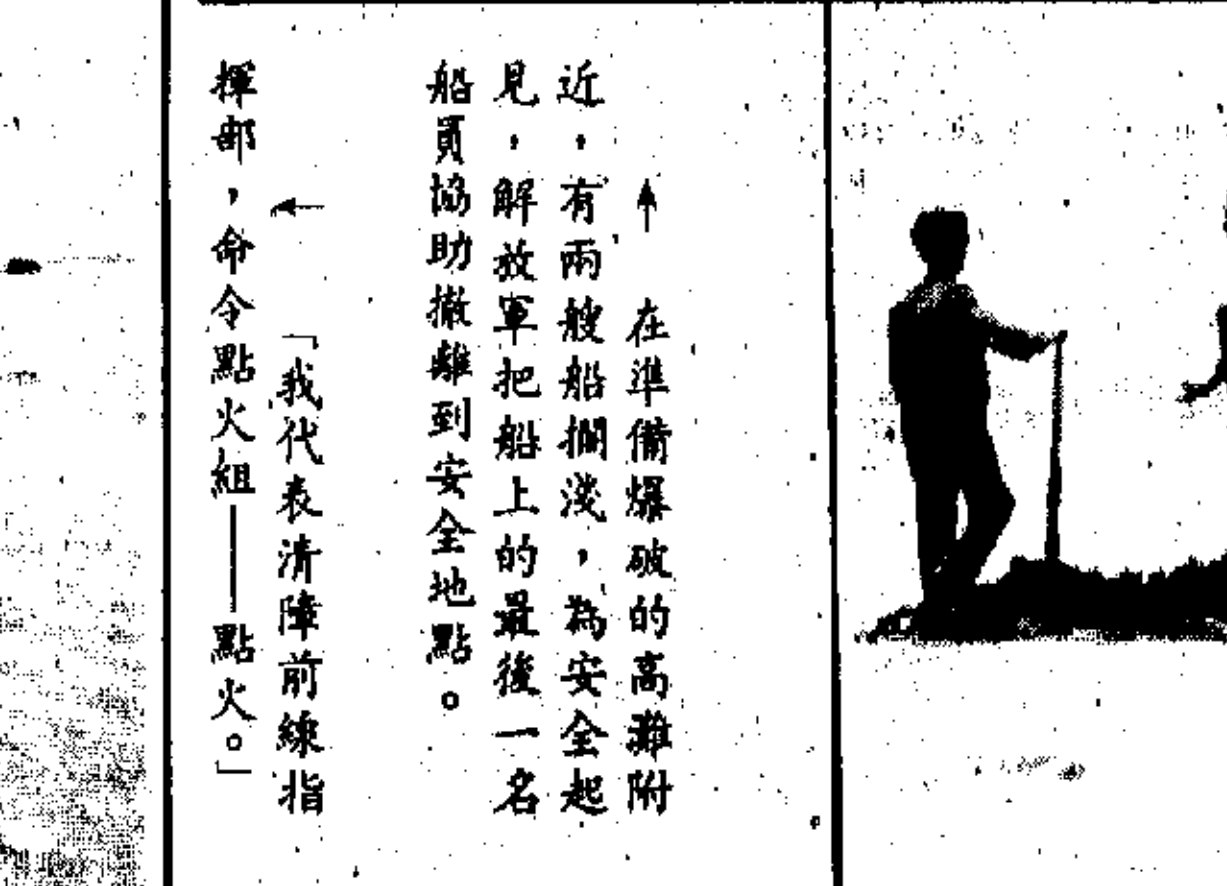 ↑ 在準備爆破的高灘附
近,有兩艘船擱淺,為安全起
見,解放軍把船上的最後一名
船員協助撤離到安全地點。
← 「我代表清障前線指
揮部,命令點火組——點火。」